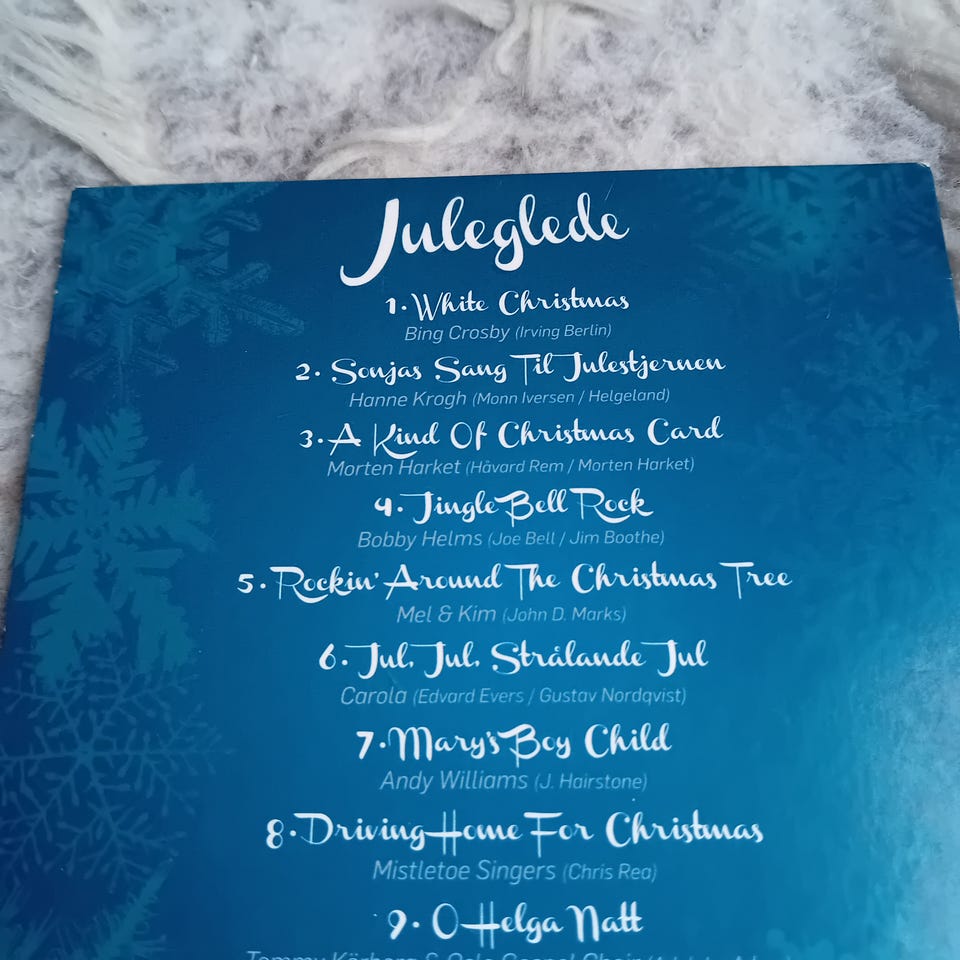 Juleglede
1. White Christmas
Bing Crosby (Irving Berlin)
2. Sonjas Sang Til Julestjernen
Hanne Krogh (Monn Iversen / Helgeland)
3. A Kind Of Christmas Card
Morten Harket (Håvard Rem / Morten Harket)
4. Jingle Bell Rock
Bobby Helms (Joe Bell / Jim Boothe)
5. Rockin' Around The Christmas Tree
Mel & Kim (John D. Marks)
6. Jul, Jul, Strålande Jul
Carola (Edvard Evers / Gustav Nordqvist)
7. Mary's Boy Child
Andy Williams (J. Hairstone)
8. Driving Home For Christmas
Mistletoe Singers (Chris Rea)
9. O Helga Natt
Tommy Körberg & Oslo Gospel Choir